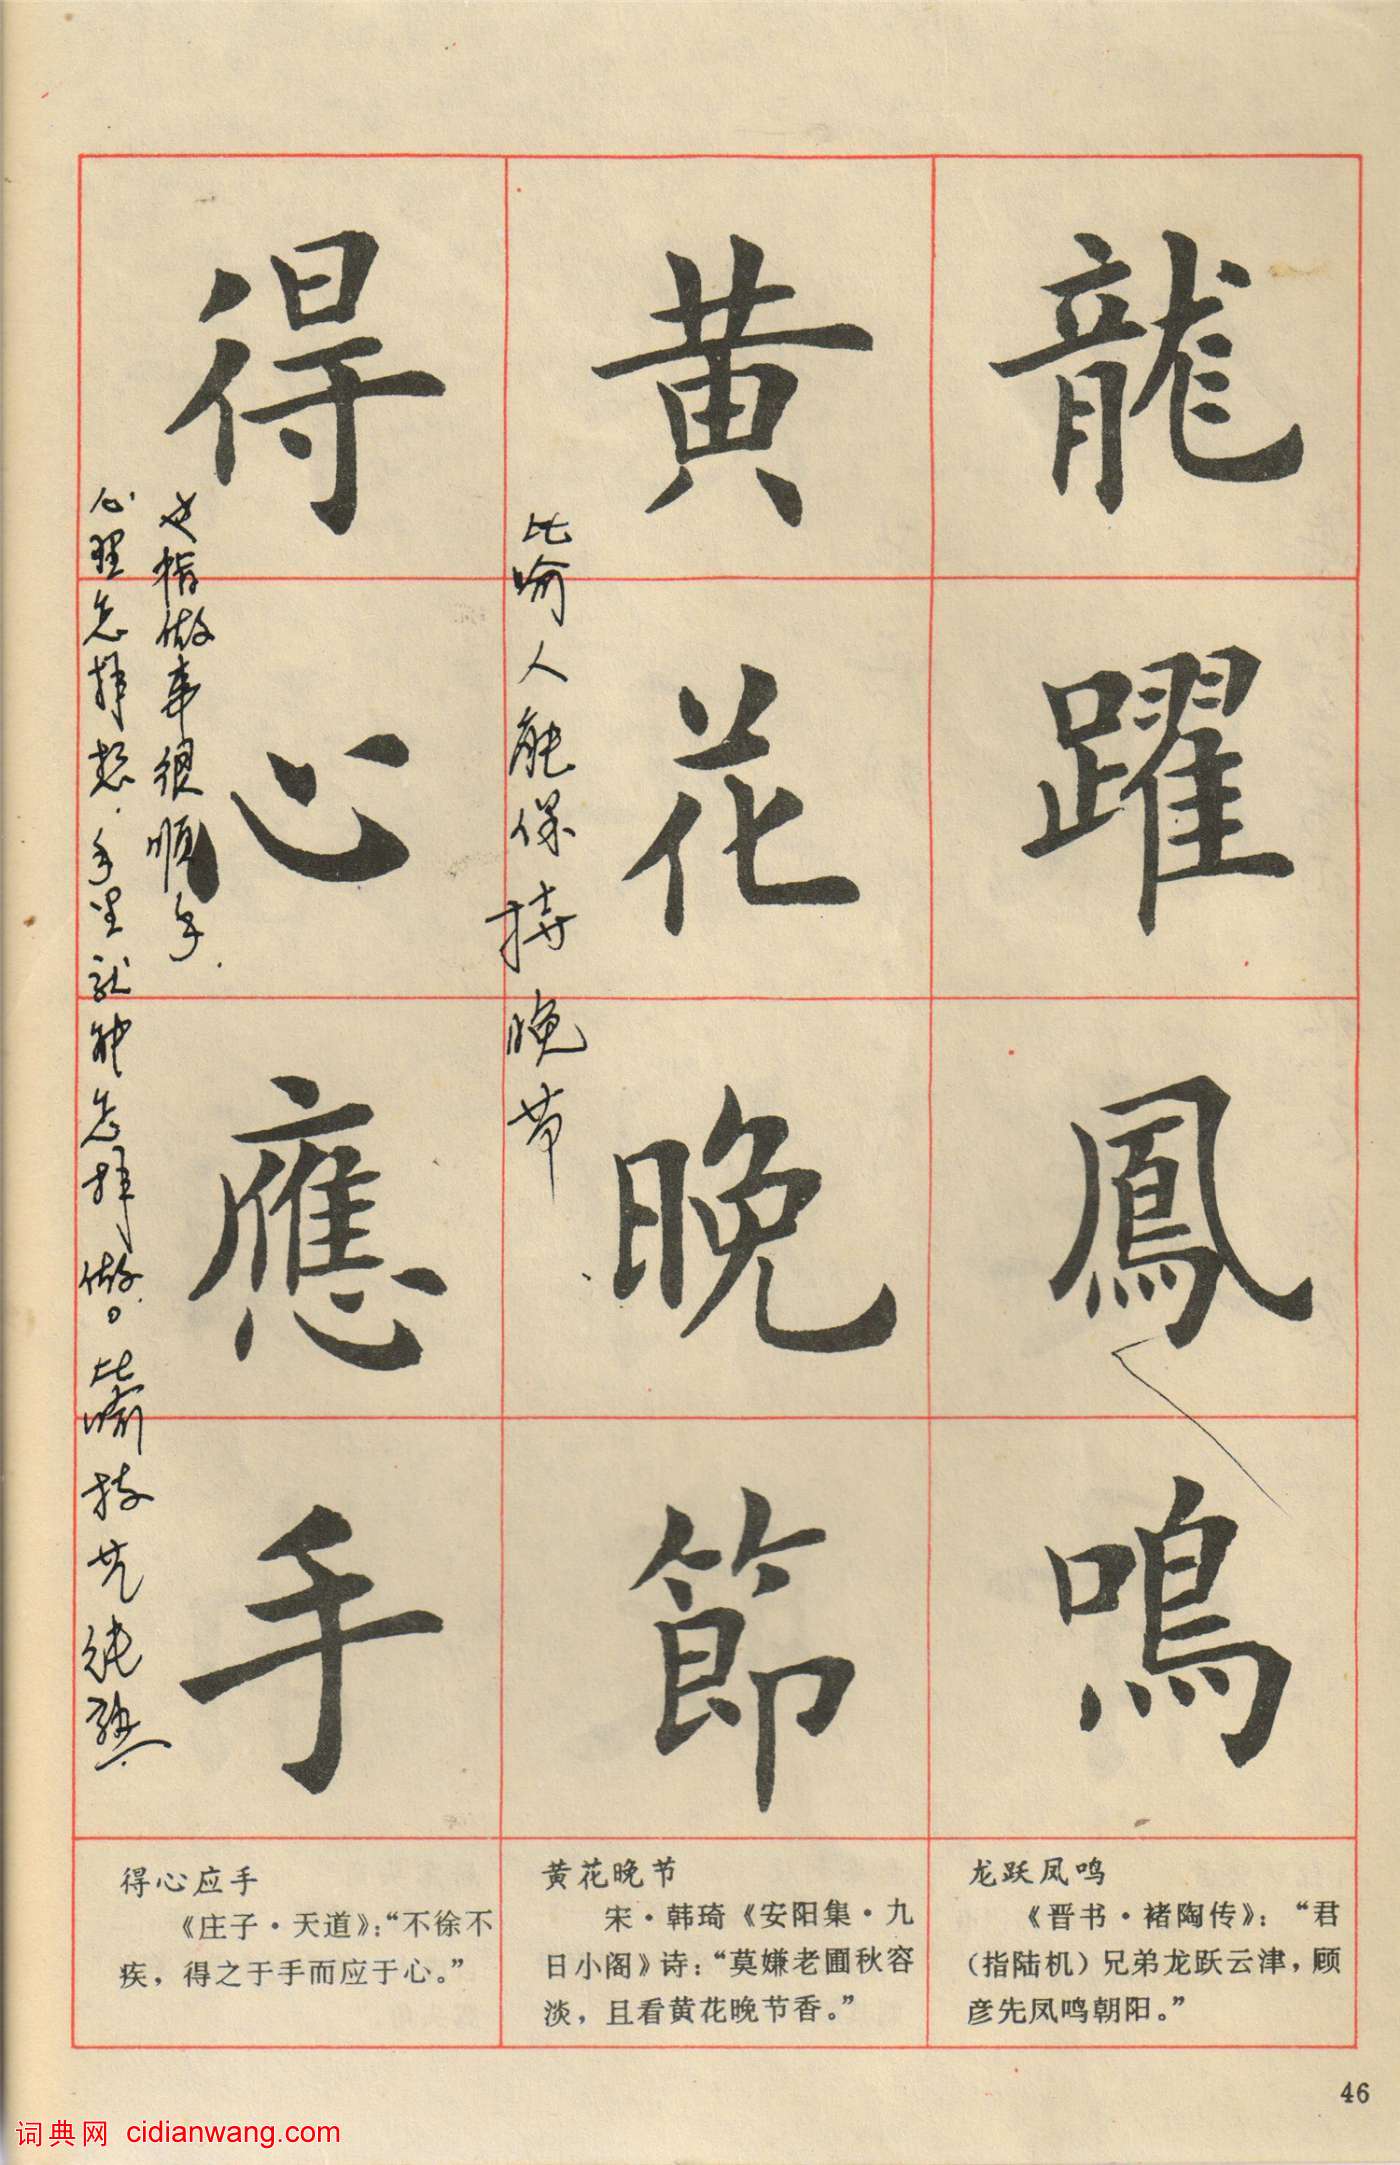 龍躍鳳鳴
黄花晚節
得心應手
比喻人能保持晚节
也指做事很顺手.
心理怎样想.手里就能怎样做。比喻技艺纯熟
龙跃凤鸣
《晋书·褚陶传》：“君
（指陆机）兄弟龙跃云津，顾
彦先凤鸣朝阳。”
黄花晚节
宋·韩琦《安阳集·九
日小阁》诗：“莫嫌老圃秋容
淡，且看黄花晚节香。”
得心应手
《庄子·天道》：“不徐不
疾，得之于手而应于心。”
46
词典网 cidianwang.com